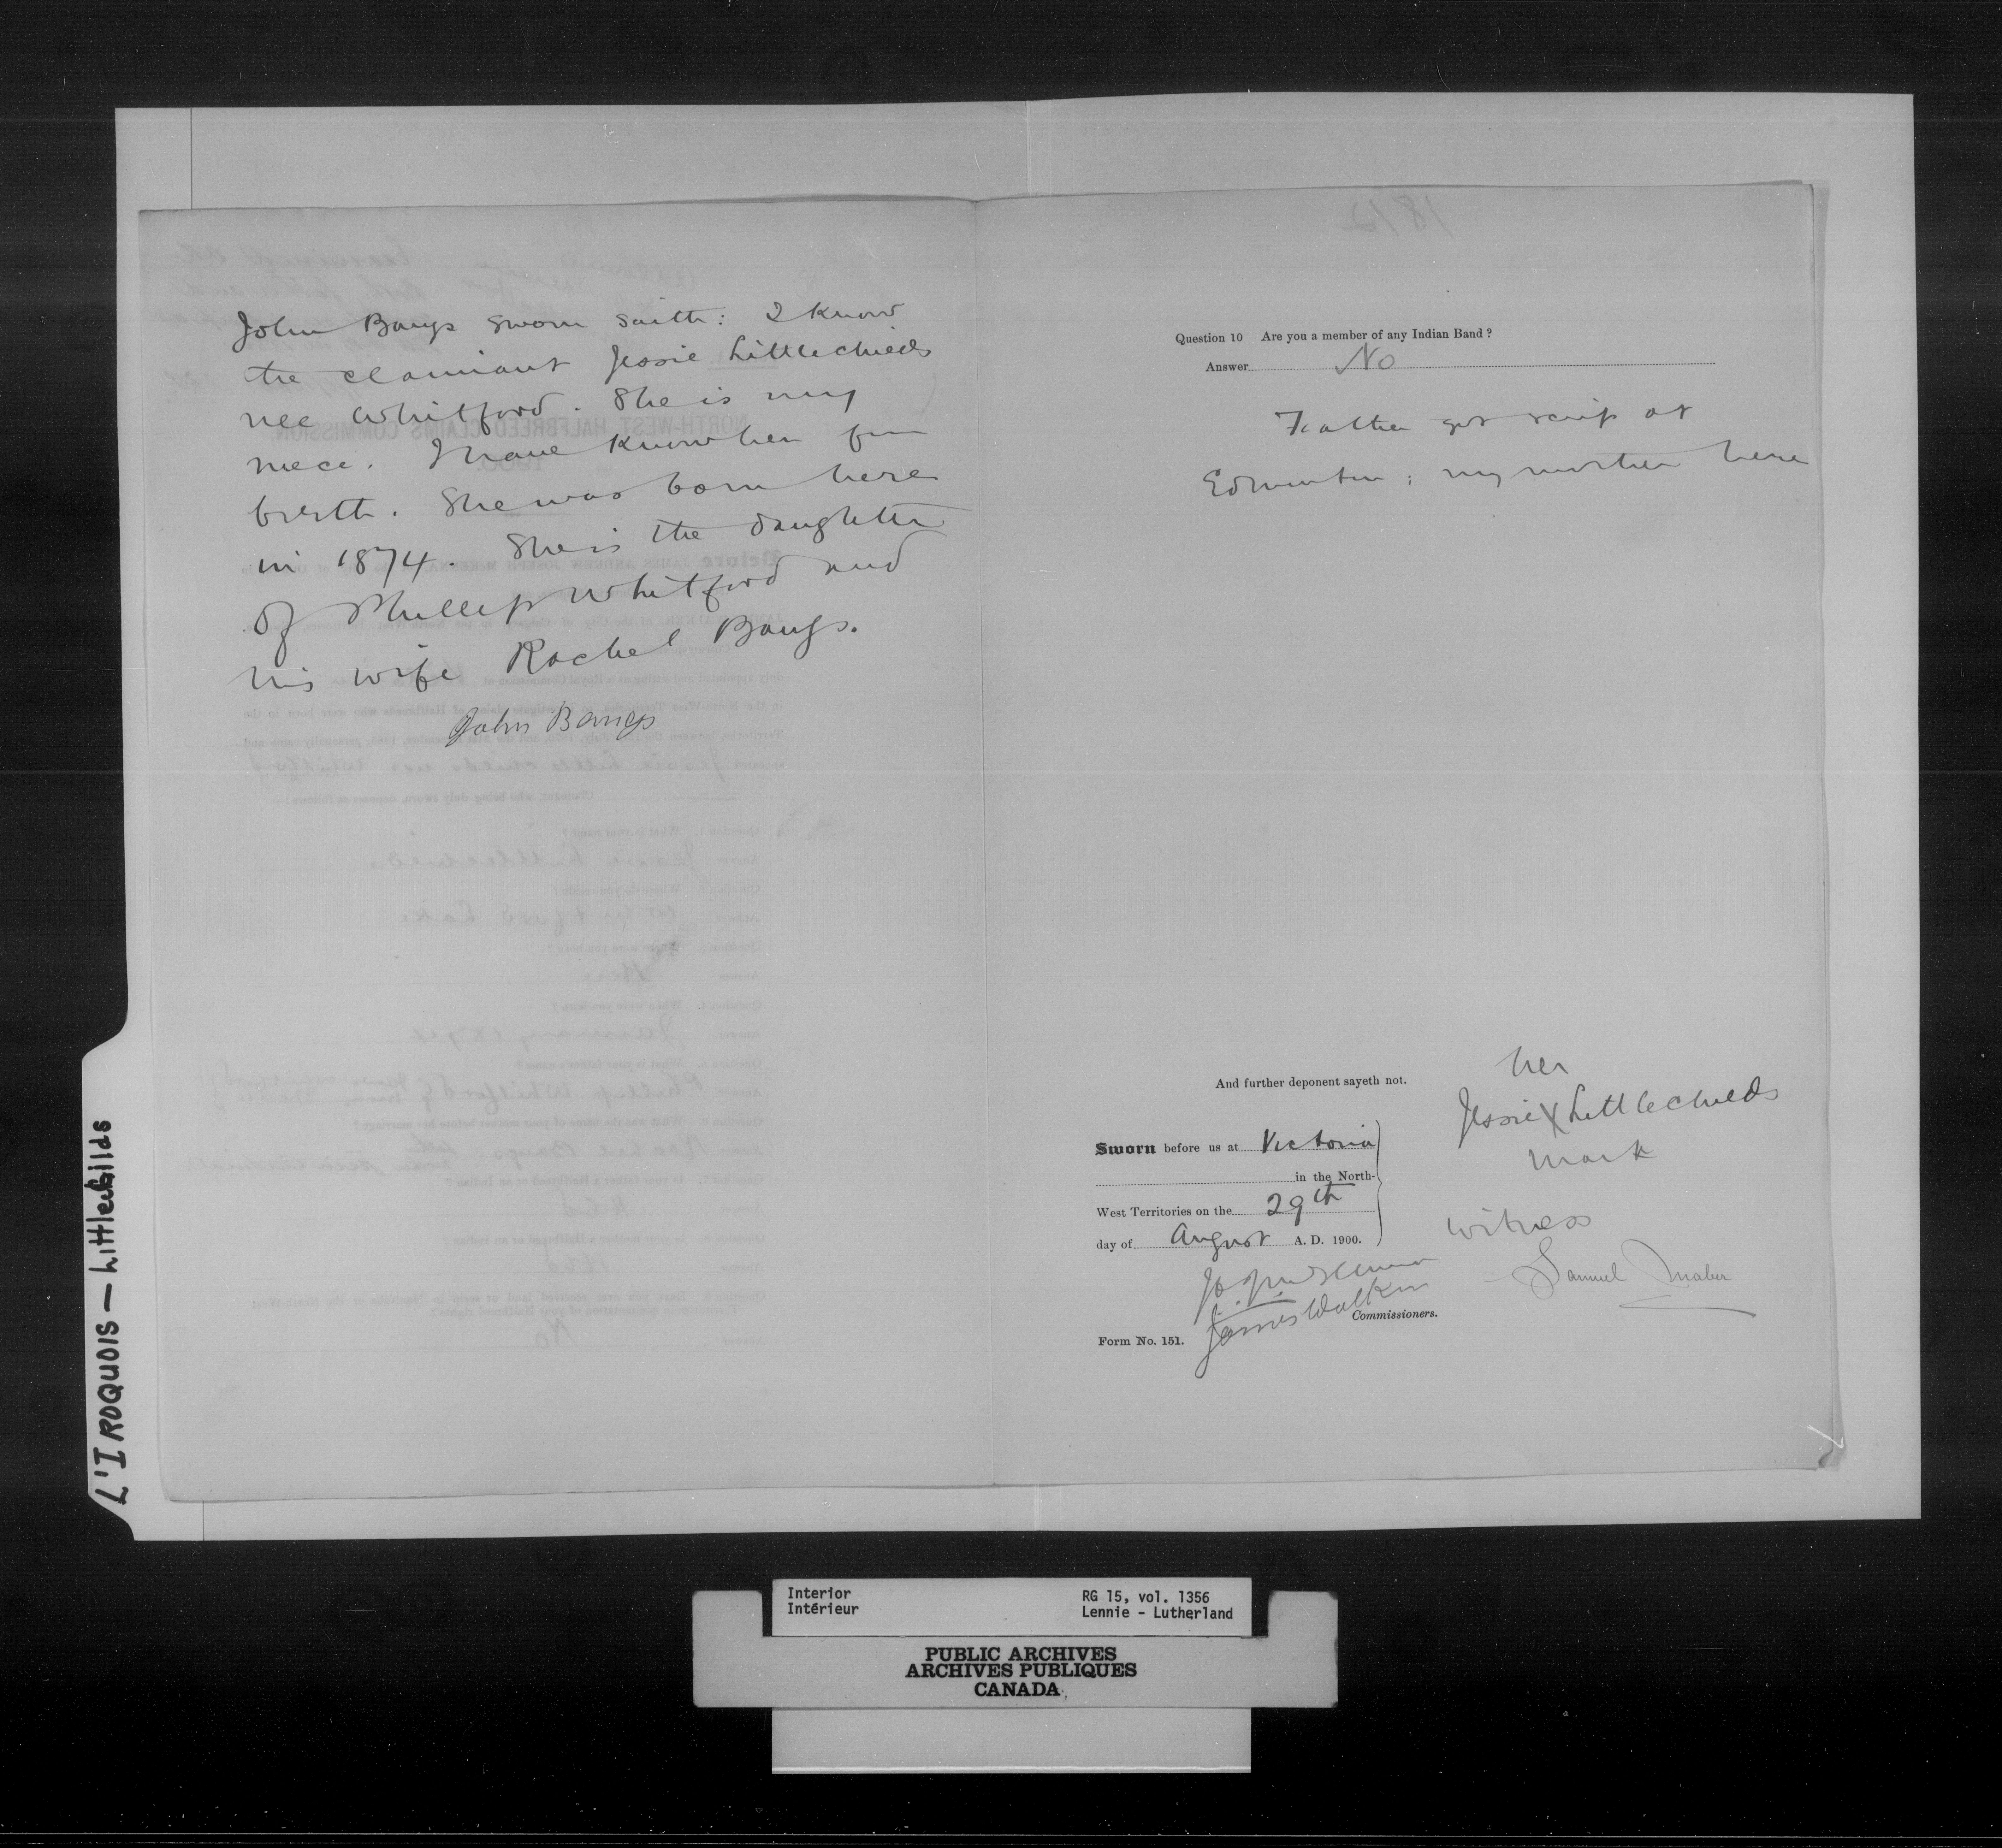 John Bangs sworn saith: I know
the claimant Jessie Littlechields
nee Whitford. She is my
niece. I have know her from
birth. She was born here
in 1874. She is the daughter
of Phillip Whitford and
his wife Rachel Bangs.
John Bangs
Question 10 Are you a member of any Indian Band?
Answer No
Father got scrip at
Edmonton; my mother here
And further deponent sayeth not.
her
Jessie X Littlechields
mark
Sworn before us at Victoria
in the North-
West Territories on the 29th
day of August A. D. 1900.
witness
Samuel Maber
James Walker
Commissioners.
Form No. 151.
L'IROQUOIS — Littlechilds
Interior
Intérieur
RG 15, vol. 1356
Lennie - Lutherland
PUBLIC ARCHIVES
ARCHIVES PUBLIQUES
CANADA